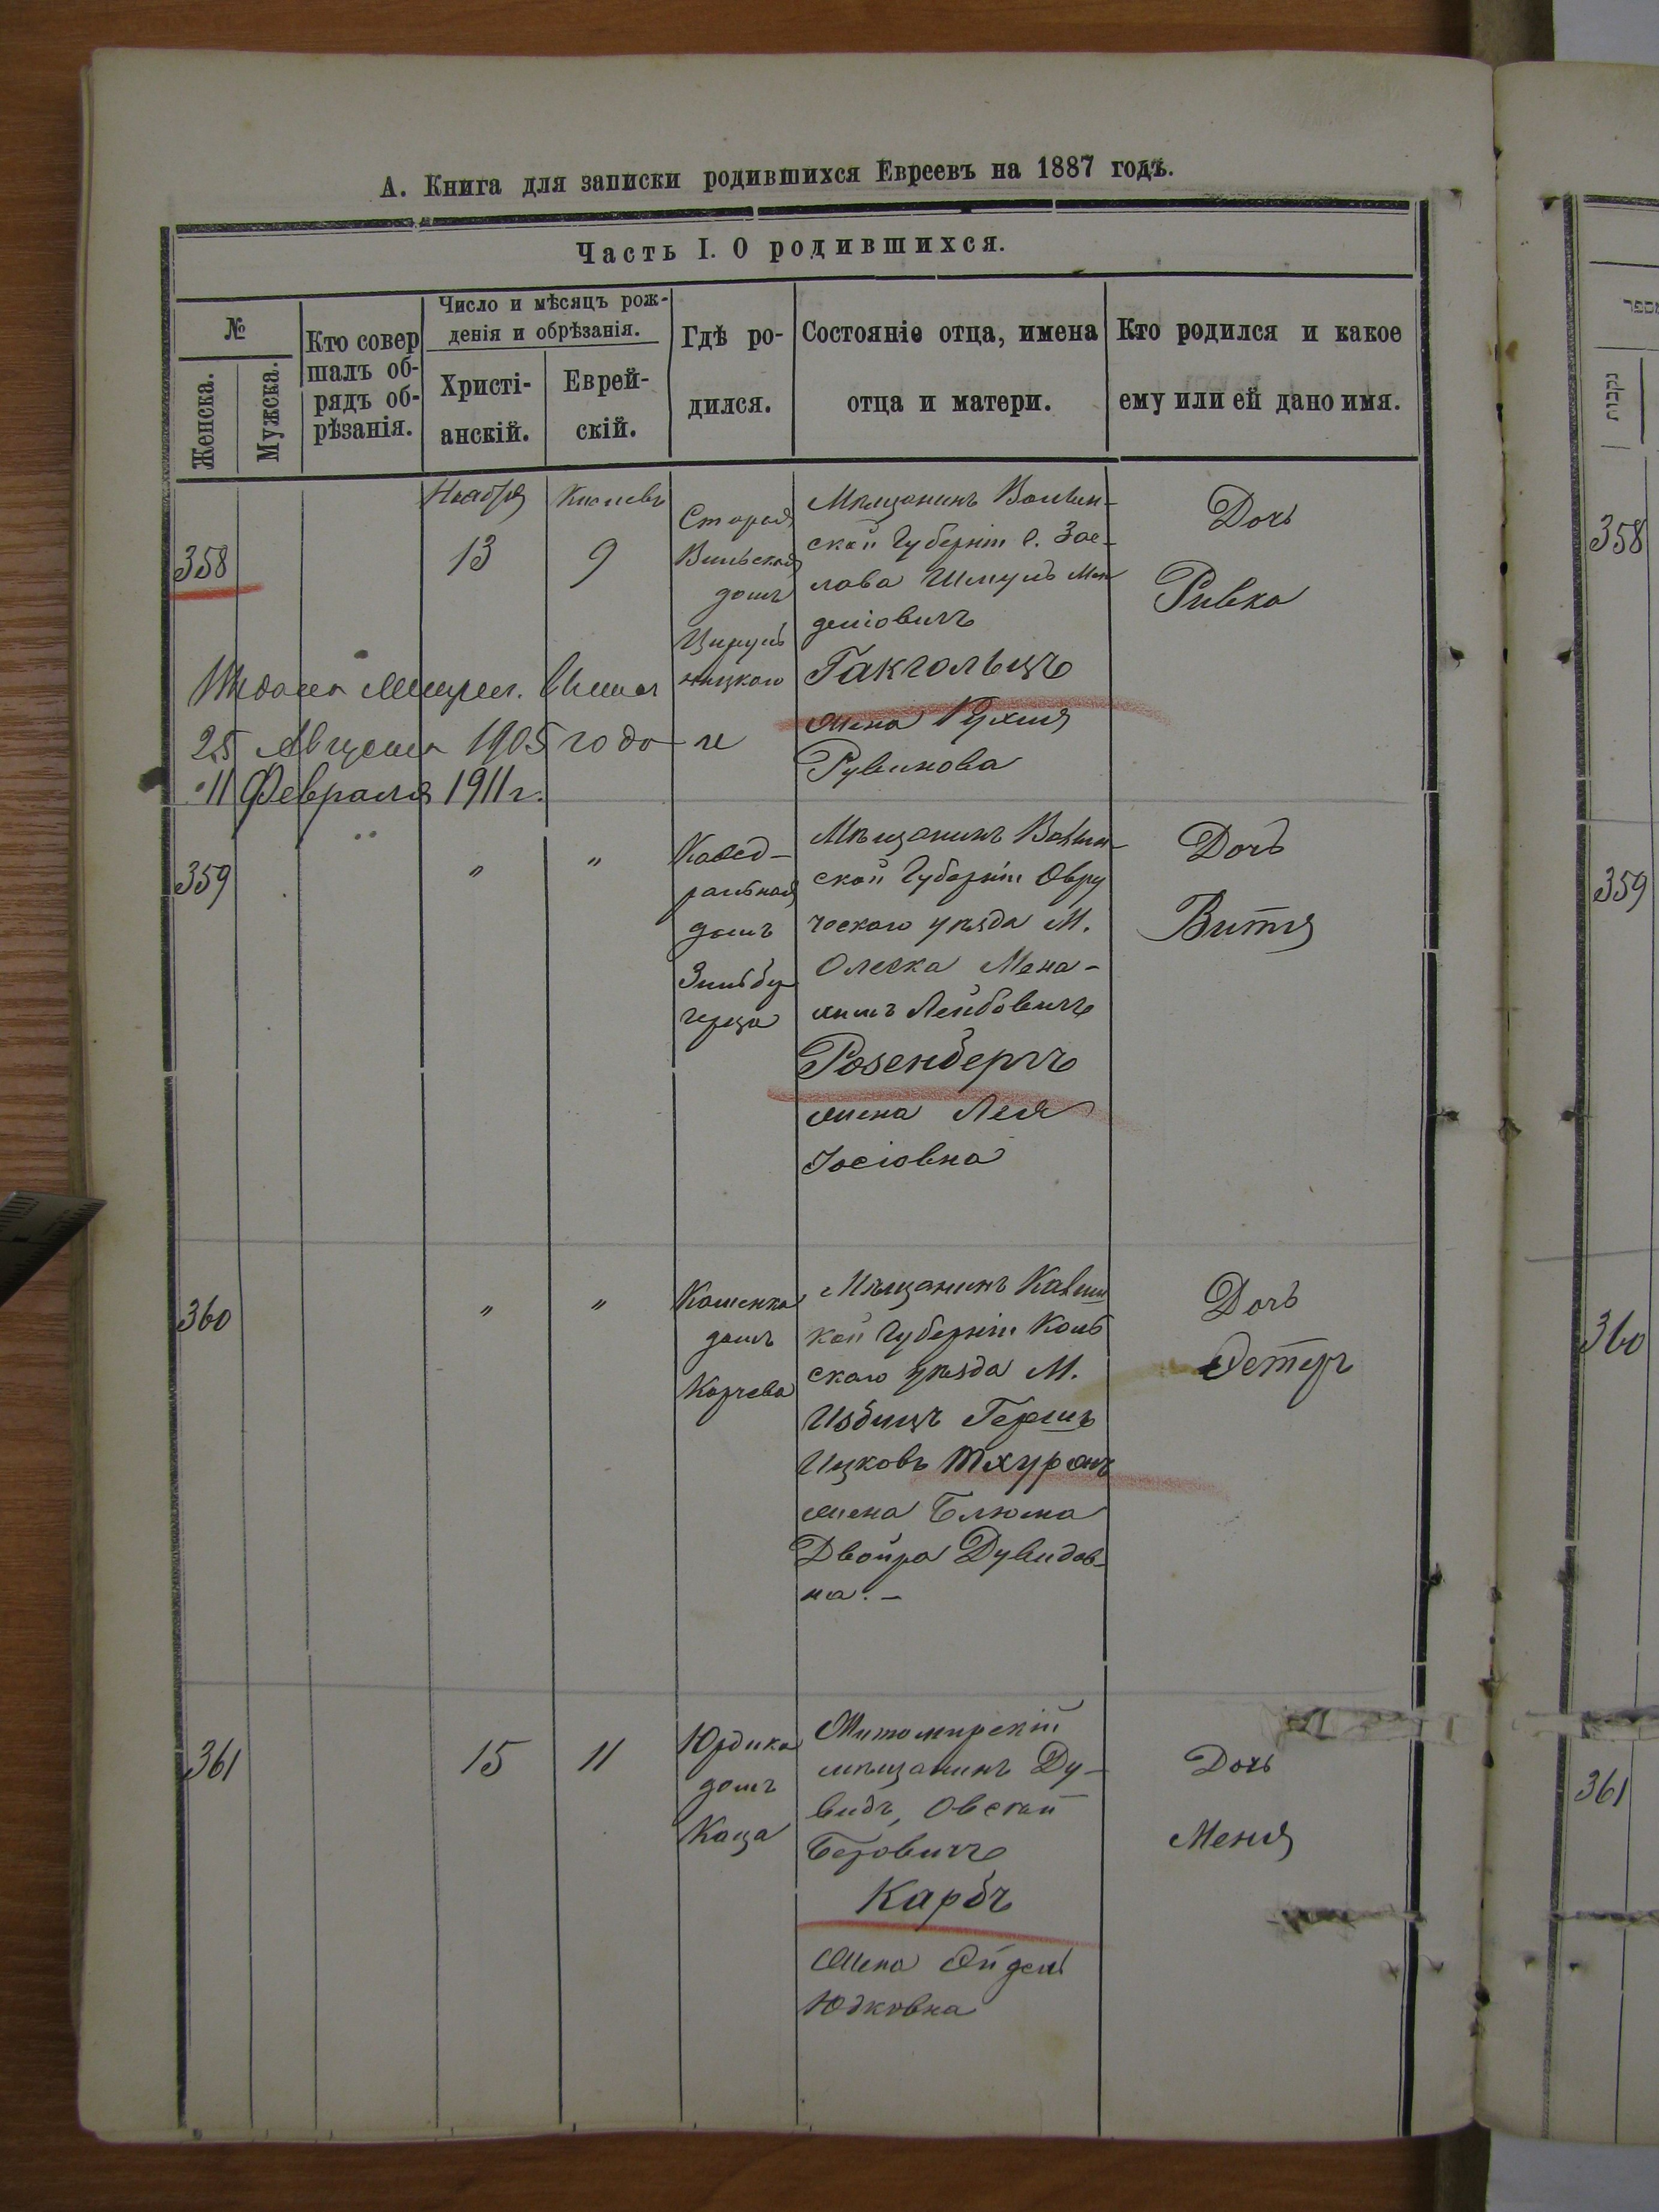 А. Книга для записки родившихся Евреевъ на 1887 годъ.
Часть I. О родившихся.
№
Женска.
Мужска.
Кто совер
шалъ об-
рядъ об-
рѣзанія.
Число и мѣсяцъ рож-
денія и обрѣзанія.
Христі-
анскій.
Еврей-
скій.
Гдѣ ро-
дился.
Состояніе отца, имена
отца и матери.
Кто родился и какое
ему или ей дано имя.
358
Ноября
13
Кислевъ
9
Старая
Вильская
домъ
Цируль
ницкаго
Мѣщанинъ Волын-
ской Губерніи г. Зас-
лава Шмуль Мен
деліовичъ
Гакгольцъ
жена Рухля
Рувинова
Дочь
Ривка
Выдана Метрич.
25 Августа 1905 года и
11 Февраля 1911 г.
359
"
"
Каѳед-
ральная
домъ
Зильбер
герца
Мѣщанинъ Волын-
ской Губерніи Овру
ческаго уѣзда М.
Олевка Мена-
химъ Лейбовичъ
Розенбергъ
жена Лея
Іосіовна
Дочь
Витя
360
"
"
Каменка
домъ
Корчева
Мѣщанинъ Калиш
кой Губерніи Коль
скаго уѣзда М.
Избицъ Гершъ
Ицковъ Тхуржъ
жена Блюма
Двойра Дувидов-
на. –
Дочь
Эстеръ
361
15
11
Юрдика
домъ
Каца
Житомирскій
мѣщанинъ Ду-
видъ, Овсей
Беровичъ
Карбъ
жена Эйдель
Юдковна
Дочь
Меня
358
359
360
361